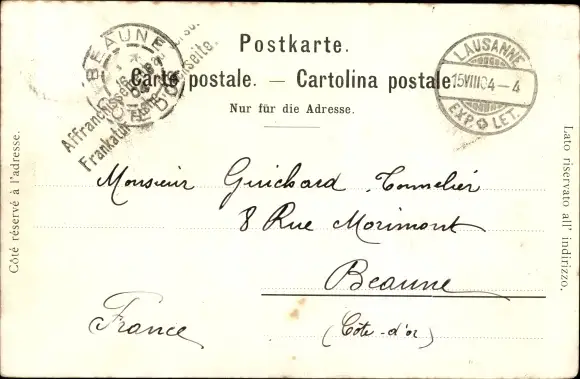 Postkarte.
Carte postale. — Cartolina postale
Nur für die Adresse.
BEAUNE
LAUSANNE
15 VIII 04 – 4
EXP LET.
Côté réservé à l'adresse.
Lato riservato all' indirizzo.
Monsieur Guichard Tonnelier
8 Rue Morimont
Beaune
(Côte-d'or)
France